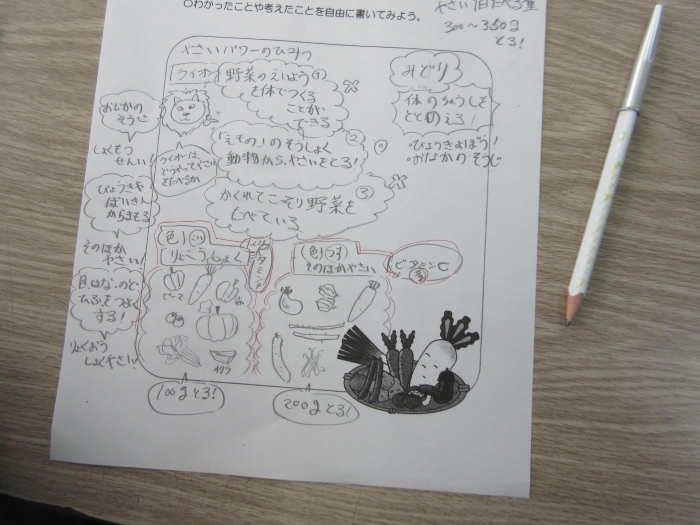 ○わかったことや考えたことを自由に書いてみよう。
やさい1日たべる量
300～350g
とろ!
やさいパワーのひみつ
ライオン
野菜のえいよう①
を体でつくる
ことが
できる
みどり
体のちょうしを
ととのえる!
・びょうきよぼう!
・おなかのそうじ
おなかの
そうじ
しょくもつ
せんい!
ライオンは
どうやってやさい
をたべるか
「えもの」のそうしょく②
動物から、やさいをとる!
かくれてこそり野菜を③
しべている
びょうきや
ばいきん
からまもる
そのほか
やさい!
目、はな、のど
ひふをつよく
する!
りょくおう
しょくやさい!
色
りょくおうしょく
ビタミン
色
うす
そのほかやさい
ビタミンC
ピーマン
オクラ
100gとろ!
200gとろ!